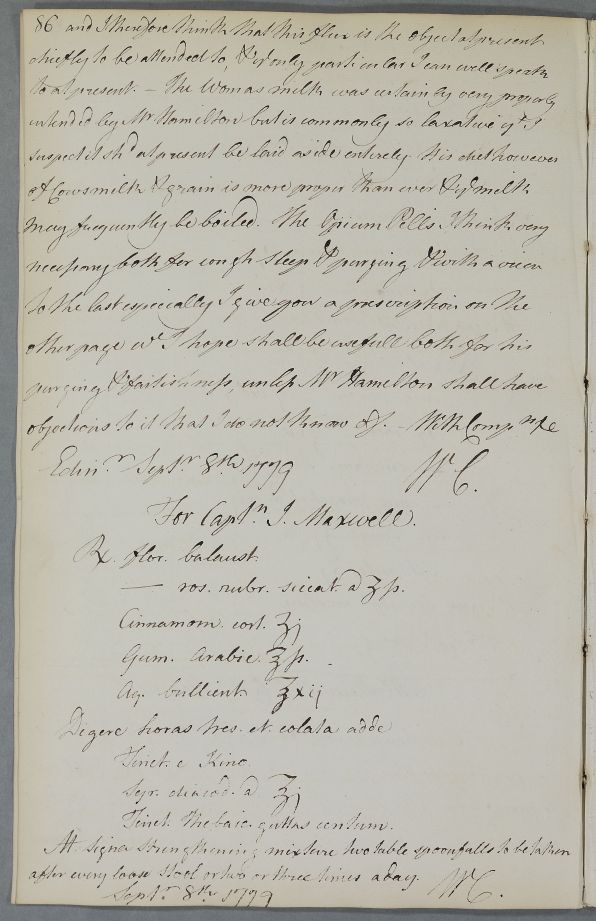 86 and I therefore think that this flux is the object at present
chiefly to be attended to, & ye only particular I can well speak
to at present. — The Womas milk was certainly very properly
intended by Mr Hamilton but is commonly so laxative yt I
suspect it shd at present be laid aside entirely His diet however
of Cows milk & grain is more proper than ever & ye milk
may frequently be boiled. The Opium Pills I think very
necessary both for cough sleep & purging & with a view
to the last especially I give you a prescription on the
other page wc I hope shall be usefull both for his
purging & faitishness, unless Mr Hamelton shall have
objections to it that I do not know of. – With Compts &c
Edinr Septr 8th 1779 WC.
For Captn J. Maxwell.
Rx. flor. balaust.
— ros. rubr. siccat. a ʒß.
Cinnamom. cort. ʒj
Gum. Arabic. ʒß.
Aq. bullient. ℥xij
Digere horas tres. et colata adde
Tinct. e Kino
Syr. diacod. a ℥j
Tinct. Thebaic. guttas centum.
M. Signa Strengthening mixture two table spoonfulls to be taken
after every loose stool or two or three times a day. WC.
Septr 8th 1779